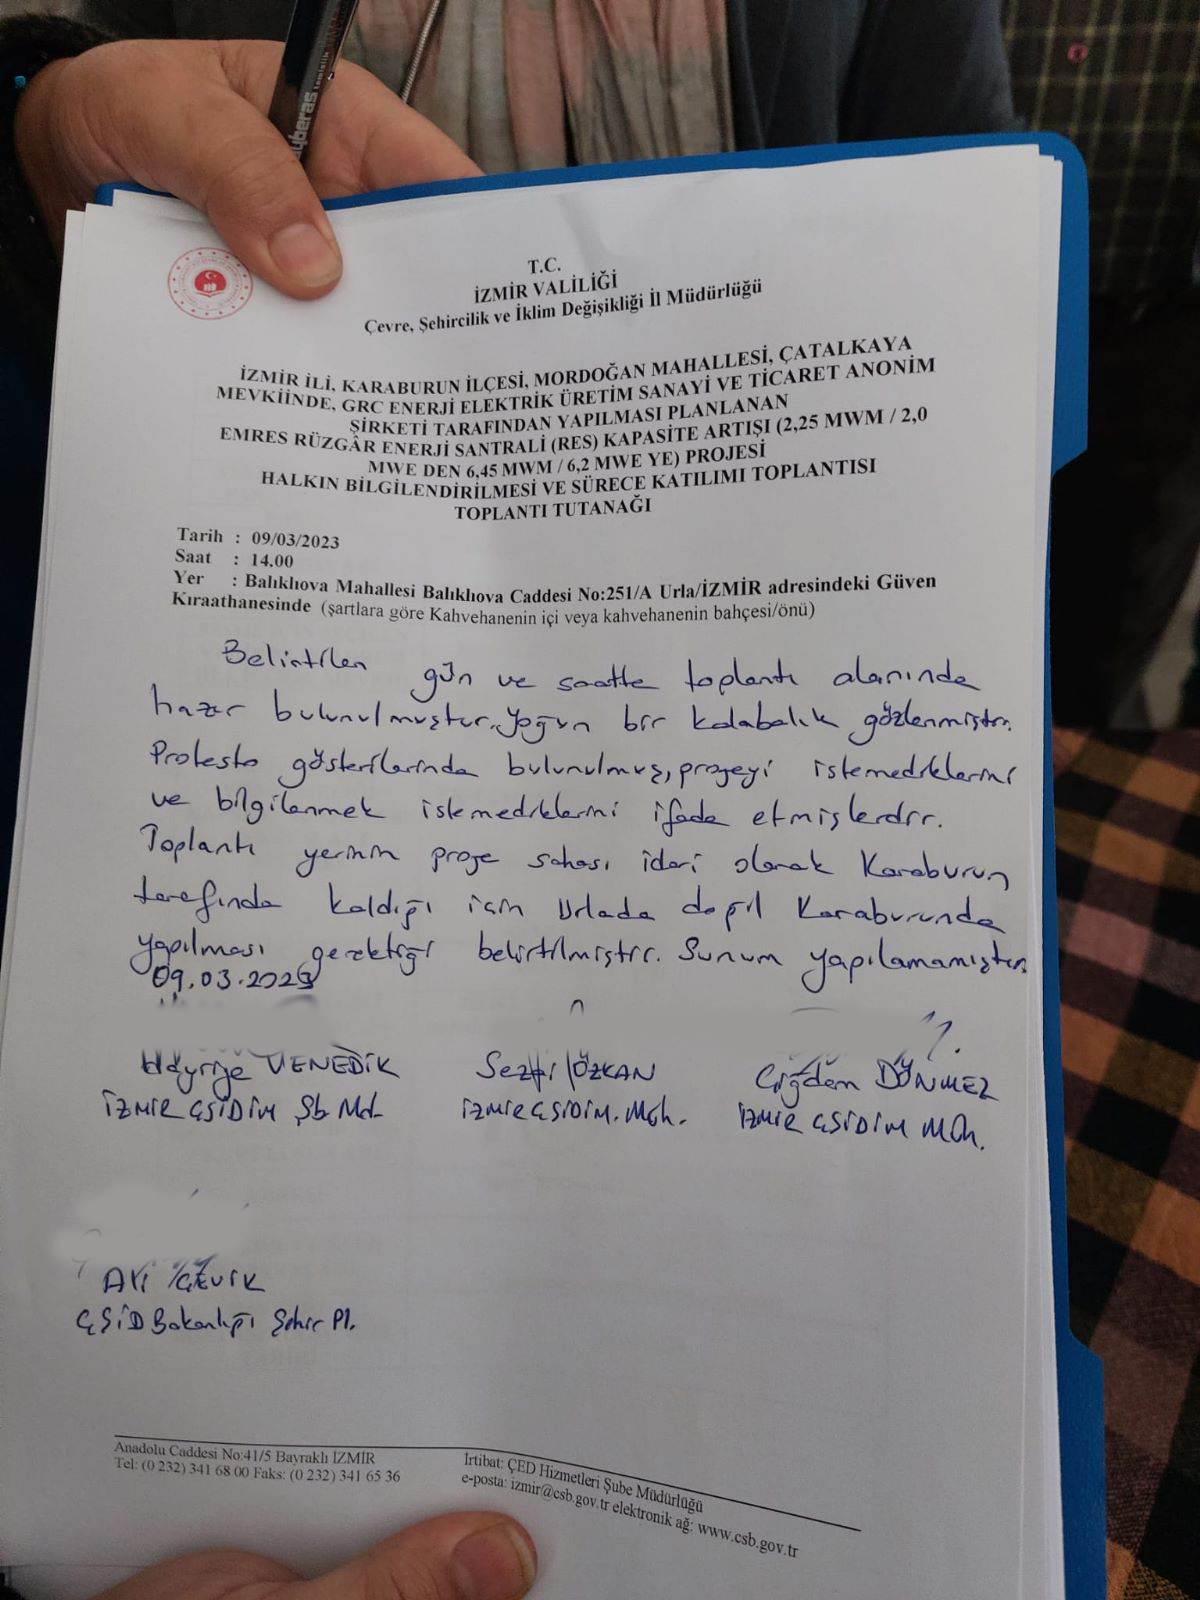 T.C.
İZMİR VALİLİĞİ
Çevre, Şehircilik ve İklim Değişikliği İl Müdürlüğü
İZMİR İLİ, KARABURUN İLÇESİ, MORDOĞAN MAHALLESİ, ÇATALKAYA
MEVKİİNDE, GRC ENERJİ ELEKTRİK ÜRETİM SANAYİ VE TİCARET ANONİM
ŞİRKETİ TARAFINDAN YAPILMASI PLANLANAN
EMRES RÜZGÂR ENERJİ SANTRALİ (RES) KAPASİTE ARTIŞI (2,25 MWM / 2,0
MWE DEN 6,45 MWM / 6,2 MWE YE) PROJESİ
HALKIN BİLGİLENDİRİLMESİ VE SÜRECE KATILIMI TOPLANTISI
TOPLANTI TUTANAĞI
Tarih : 09/03/2023
Saat : 14.00
Yer : Balıklıova Mahallesi Balıklıova Caddesi No:251/A Urla/İZMİR adresindeki Güven
Kıraathanesinde (şartlara göre Kahvehanenin içi veya kahvehanenin bahçesi/önü)
Belirtilen gün ve saatte toplantı alanında
hazır bulunulmuştur. Yoğun bir kalabalık gözlenmiştir.
Protesto gösterilerinde bulunulmuş, projeyi istemediklerini
ve bilgilenmek istemediklerini ifade etmişlerdir.
Toplantı yerinin proje sahası idari olarak Karaburun
tarafında kaldığı için Urlada değil Karaburunda
yapılması gerektiği belirtilmiştir. Sunum yapılamamıştır.
09.03.2023
Hayriye VENEDİK Sezai ÖZKAN Çiğdem DÖNMEZ
İZMİR ÇŞİDİM Şb. Md. İZMİR ÇŞİDİM. Müh. İZMİR ÇŞİDİM Müh.
Ali ÇEVİK
ÇŞİD Bakanlığı Şehir Pl.
Anadolu Caddesi No:41/5 Bayraklı İZMİR İrtibat: ÇED Hizmetleri Şube Müdürlüğü
Tel: (0 232) 341 68 00 Faks: (0 232) 341 65 36 e-posta: izmir@csb.gov.tr elektronik ağ: www.csb.gov.tr